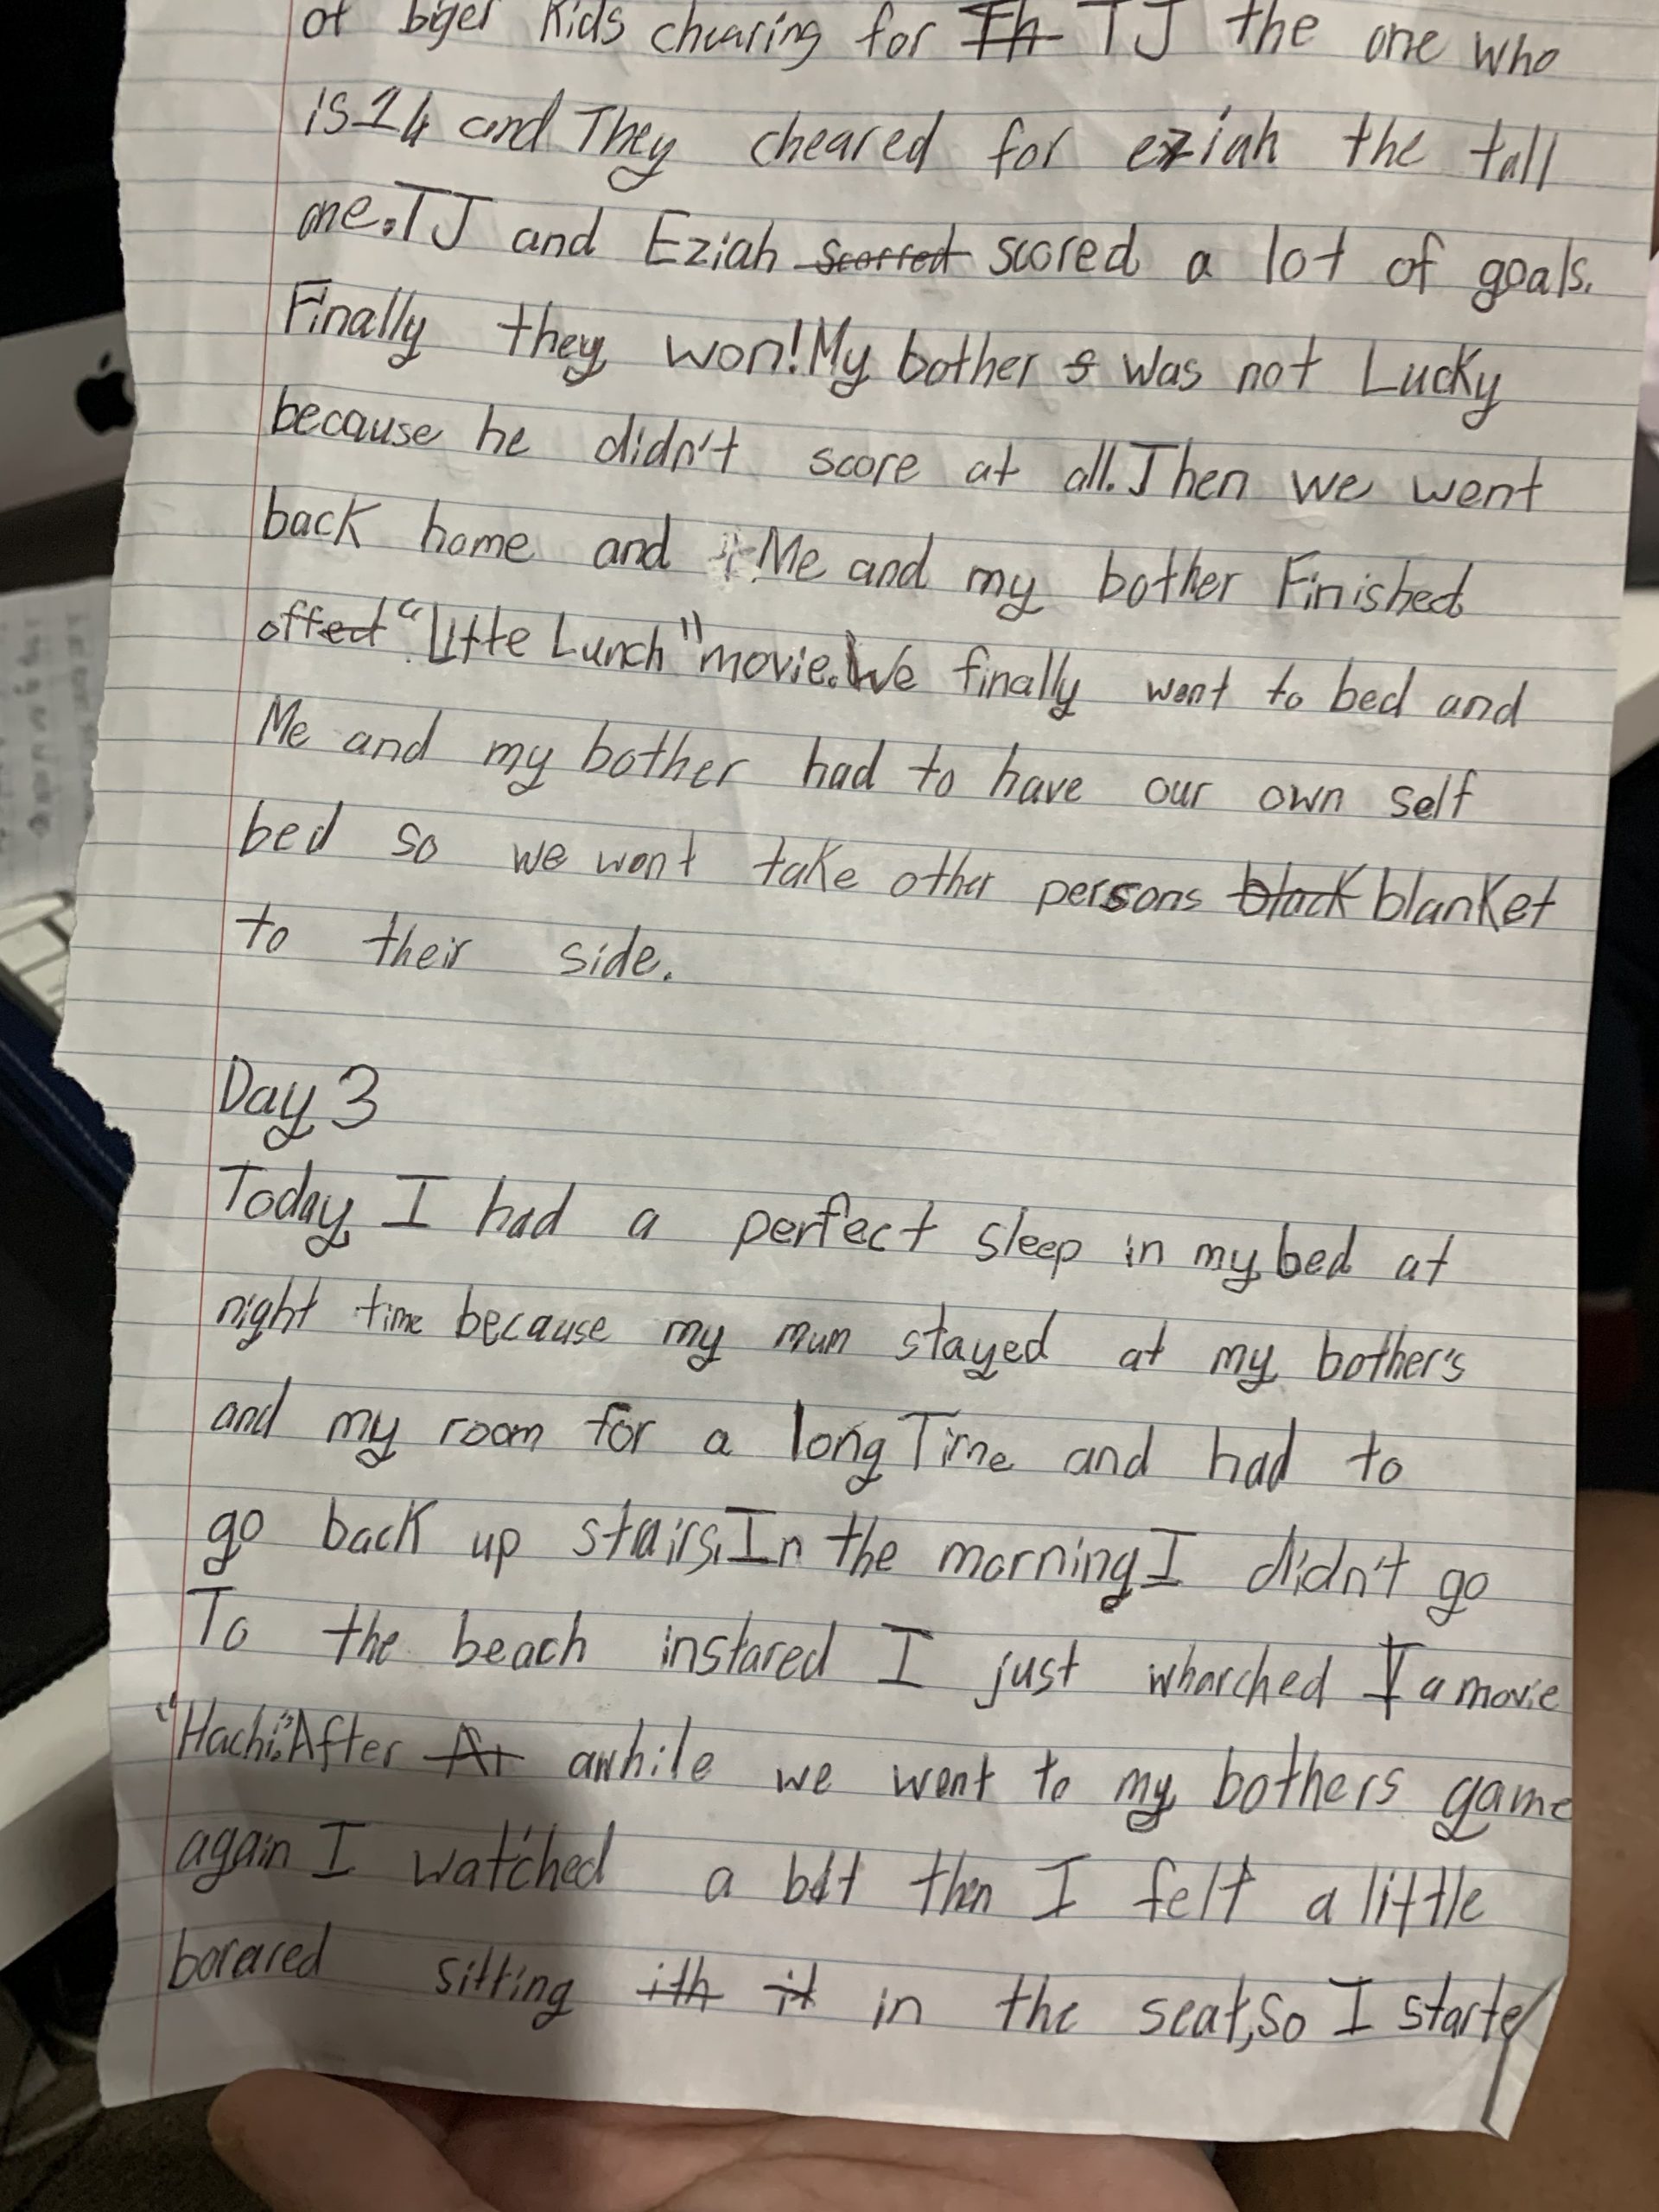 of biger Kids chearing for Th TJ the one who
is 14 and They cheared for eziah the tall
one. TJ and Eziah scorred scored a lot of goals.
Finally they won! My bother s was not Lucky
because he didn't score at all. Then we went
back home and Me and my bother Finished
offed "Little Lunch" movie. We finally went to bed and
Me and my bother had to have our own self
bed so we wont take other persons black blanket
to their side.
Day 3
Today, I had a perfect sleep in my bed at
night time because my mum stayed at my bother's
and my room for a long Time and had to
go back up stairs. In the morning, I didn't go
To the beach instared I just wharched I a movie
"Hachi." After At awhile we went to my bothers game
again I watched a bit then I felt a little
borared sitting ith it in the seat, so I starte